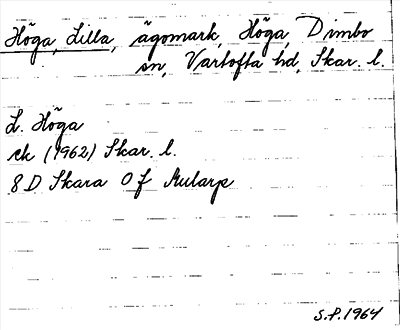 Höga, Lilla, ägomark, Höga, Dimbo
sn, Vartofta hd, Skar. l.
L. Höga
ek (1962) Skar. l.
8 D Skara 0 f Mularp
S.P. 1964